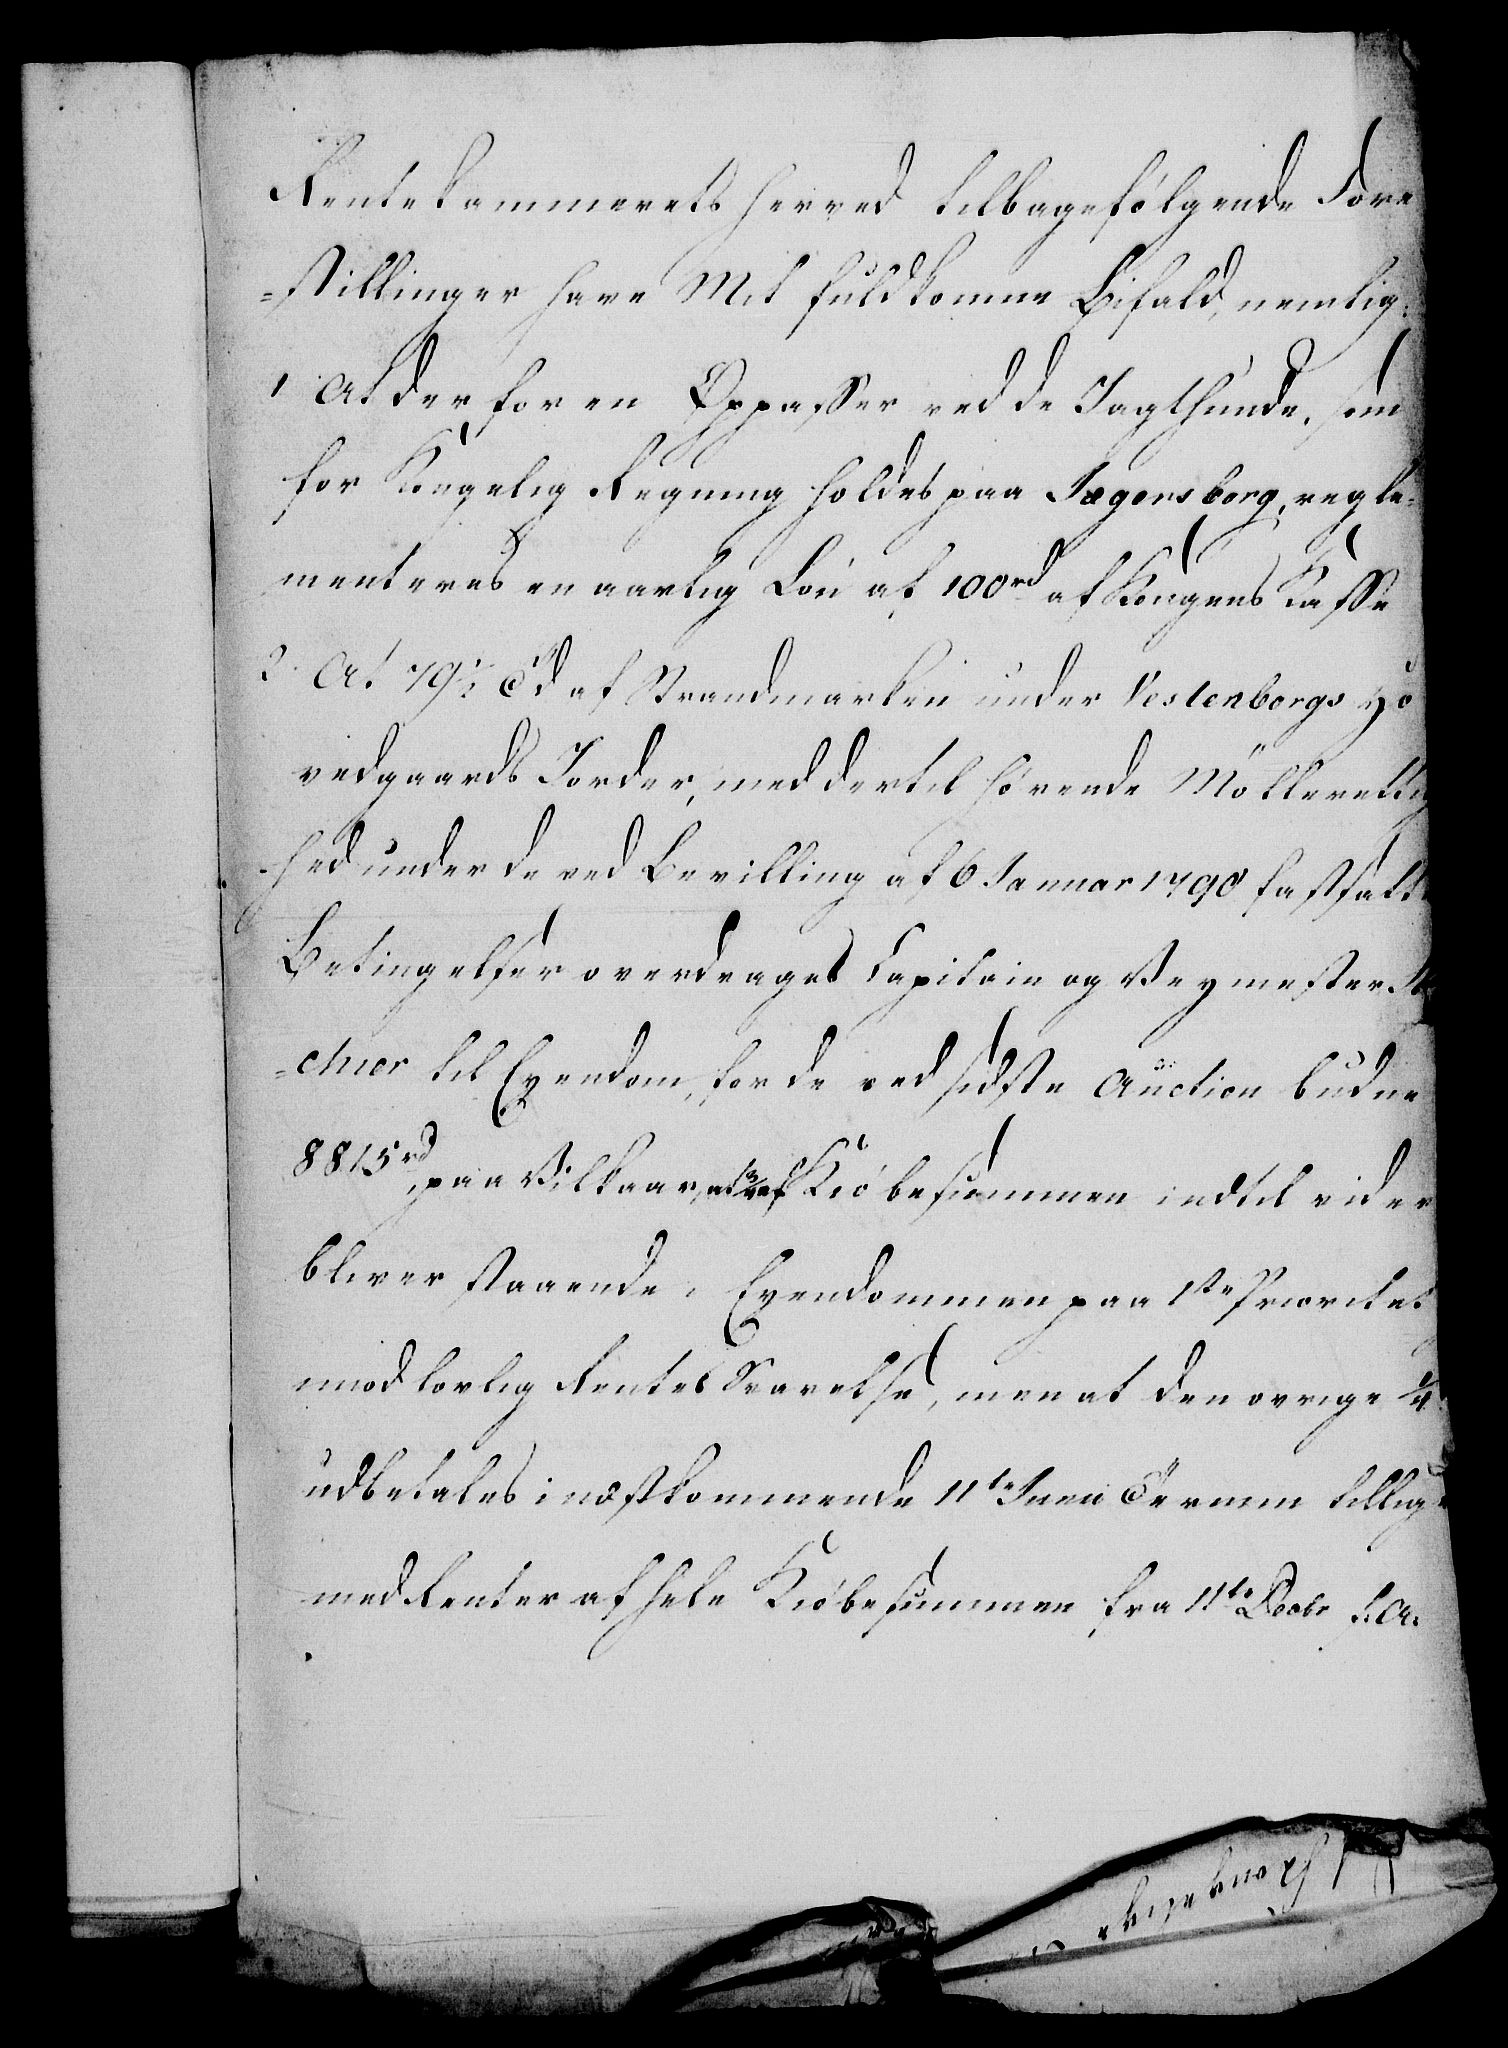 Rentekammerets herved tilbagefølgende Fore
=stillinger have Mit fuldkomne Bifald, nemlig:
1 At der for en Oppasser ved de Jagthunde, som
for Kongelig Regning holdes paa Jægersborg, regle-
menteres en aarlig Lön af 100 rd af Kongens Kasse
2. At 79½ Td af Strandmarken under Vestenborgs Ho
vedgaards Jorder, med dertil hörende Möllerettig
hed under de ved Bevilling af 6 Januar 1790 fastsatte
Betingelser overdrages Capitain og Veymester
=chier til Eyendom, for de ved sidste Auction budne
8815 rd, paa Vilkaar, at ¾ af Kiöbesummen indtil vider
bliver staaende i Eyendommen paa 1ste Prioritet
mod lovlig Rentes Svarelse, men at den øvrige ¼
udbetales i næstkommende 11te Juni Termin tillige
med Renter af hele Kiöbesummen fra 11te Decbr f: A: